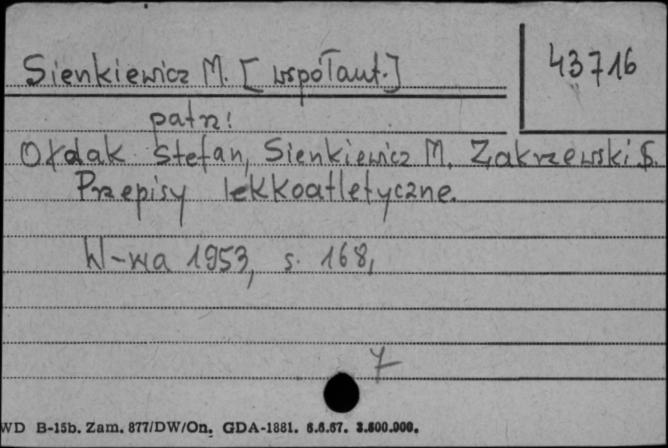 Sienkiewicz M. [współaut.]
43716
patrz:
Ołdak Stefan, Sienkiewicz M. Zakrzewski S.
Przepisy lekkoatletyczne.
W-wa 1953, s. 168,
7
WD B-15b. Zam. 877/DW/On. GDA-1881. 6.6.67. 3.600.000.